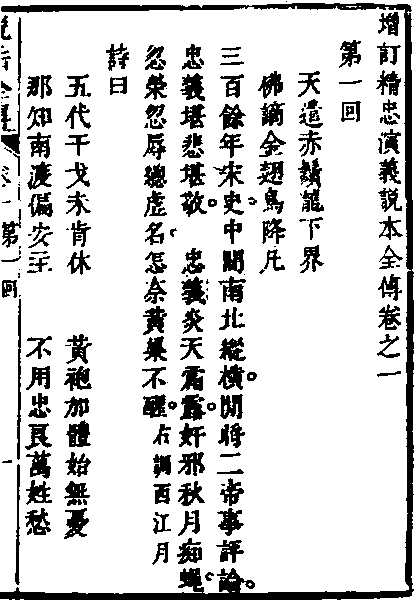 增訂精忠演義說本全傳卷之一
第一回
天遣赤鬚龍下界
佛謫金翅鳥降凡
三百餘年宋史中間南北縱橫。閒將二帝事評論。
忠義堪悲堪敬。忠義炎天霜露。奸邪秋月痴蠅。
忽榮忽辱總虛名。怎奈黃粱不醒。右調西江月
詩曰
五代干戈未肯休 黃袍加體始無憂
那知南渡偏安主 不用忠良萬姓愁
說岳全傳 卷一 第一回 一